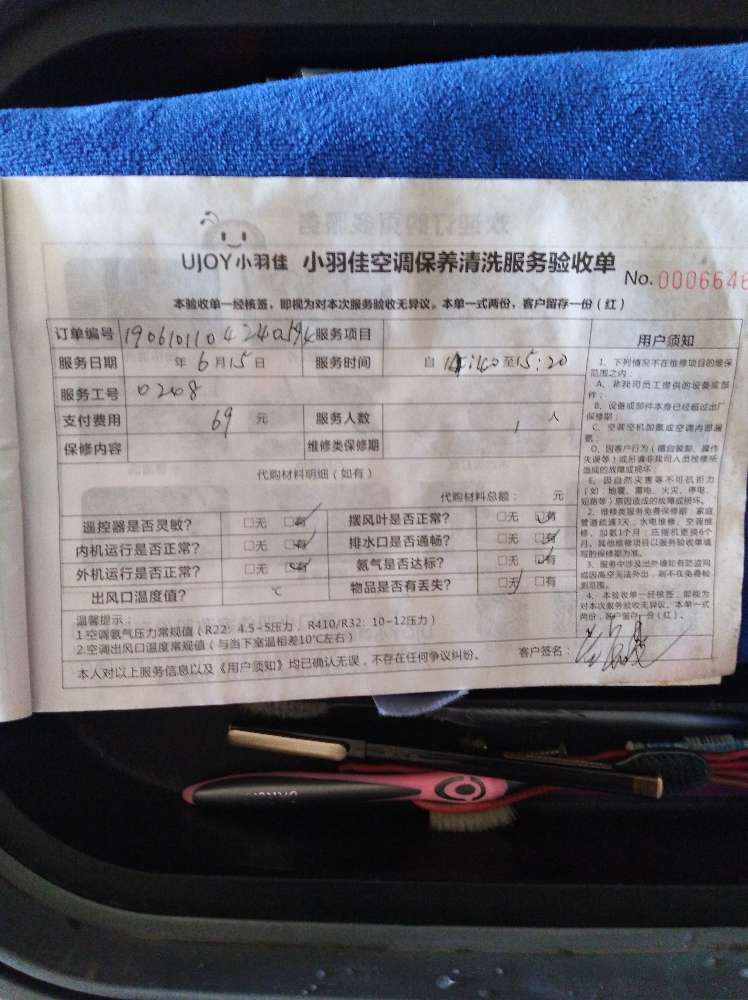 UJOY小羽佳 小羽佳空调保养清洗服务验收单 No. 0006646
本验收单一经核签，即视为对本次服务验收无异议。本单一式两份，客户留存一份（红）
订单编号 服务项目
服务日期 年 6 月 15 日 服务时间 自 14:40 至 15:20
服务工号 0208
支付费用 69 元 服务人数 1 人
保修内容 维修类保修期
代购材料明细（如有）
代购材料总额： 元
遥控器是否灵敏？ □无 □有 摆风叶是否正常？ □无 □有
内机运行是否正常？ □无 □有 排水口是否通畅？ □无 □有
外机运行是否正常？ □无 □有 氨气是否达标？ □无 □有
出风口温度值？ ℃ 物品是否有丢失？ □无 □有
温馨提示：
1.空调氨气压力常规值（R22：4.5-5压力，R410/R32：10-12压力）
2.空调出风口温度常规值（与当下室温相差10℃左右）
本人对以上服务信息以及《用户须知》均已确认无误，不存在任何争议纠纷。 客户签名：
用户须知
1、下列情况不在维修项目的维保
范围之内：
A、非我司员工提供的设备或部
件；
B、设备或部件本身已经超过出厂
保修期；
C、空调空机加氨或空调内部漏
氨；
D、因客户行为（擅自装卸、操作
失误等）或另请非我司人员检修所
造成的故障或损坏；
E、因自然灾害等不可抗拒力
（如：地震、雷电、火灾、停电、
短路等）原因造成的故障或损坏。
2、维修类服务免费保修期：家庭
管道疏通3天；水电维修、空调维
修、加氨1个月；压缩机更换6个
月，其他维修项目以服务验收单填
写的保修期为准。
3、服务中涉及出外墙如有防盗网
或因高空无法外出，则不在免费检
测范围。
4、本验收单一经核签，即视为
对本次服务验收无异议。本单一式
两份，客户留存一份（红）。